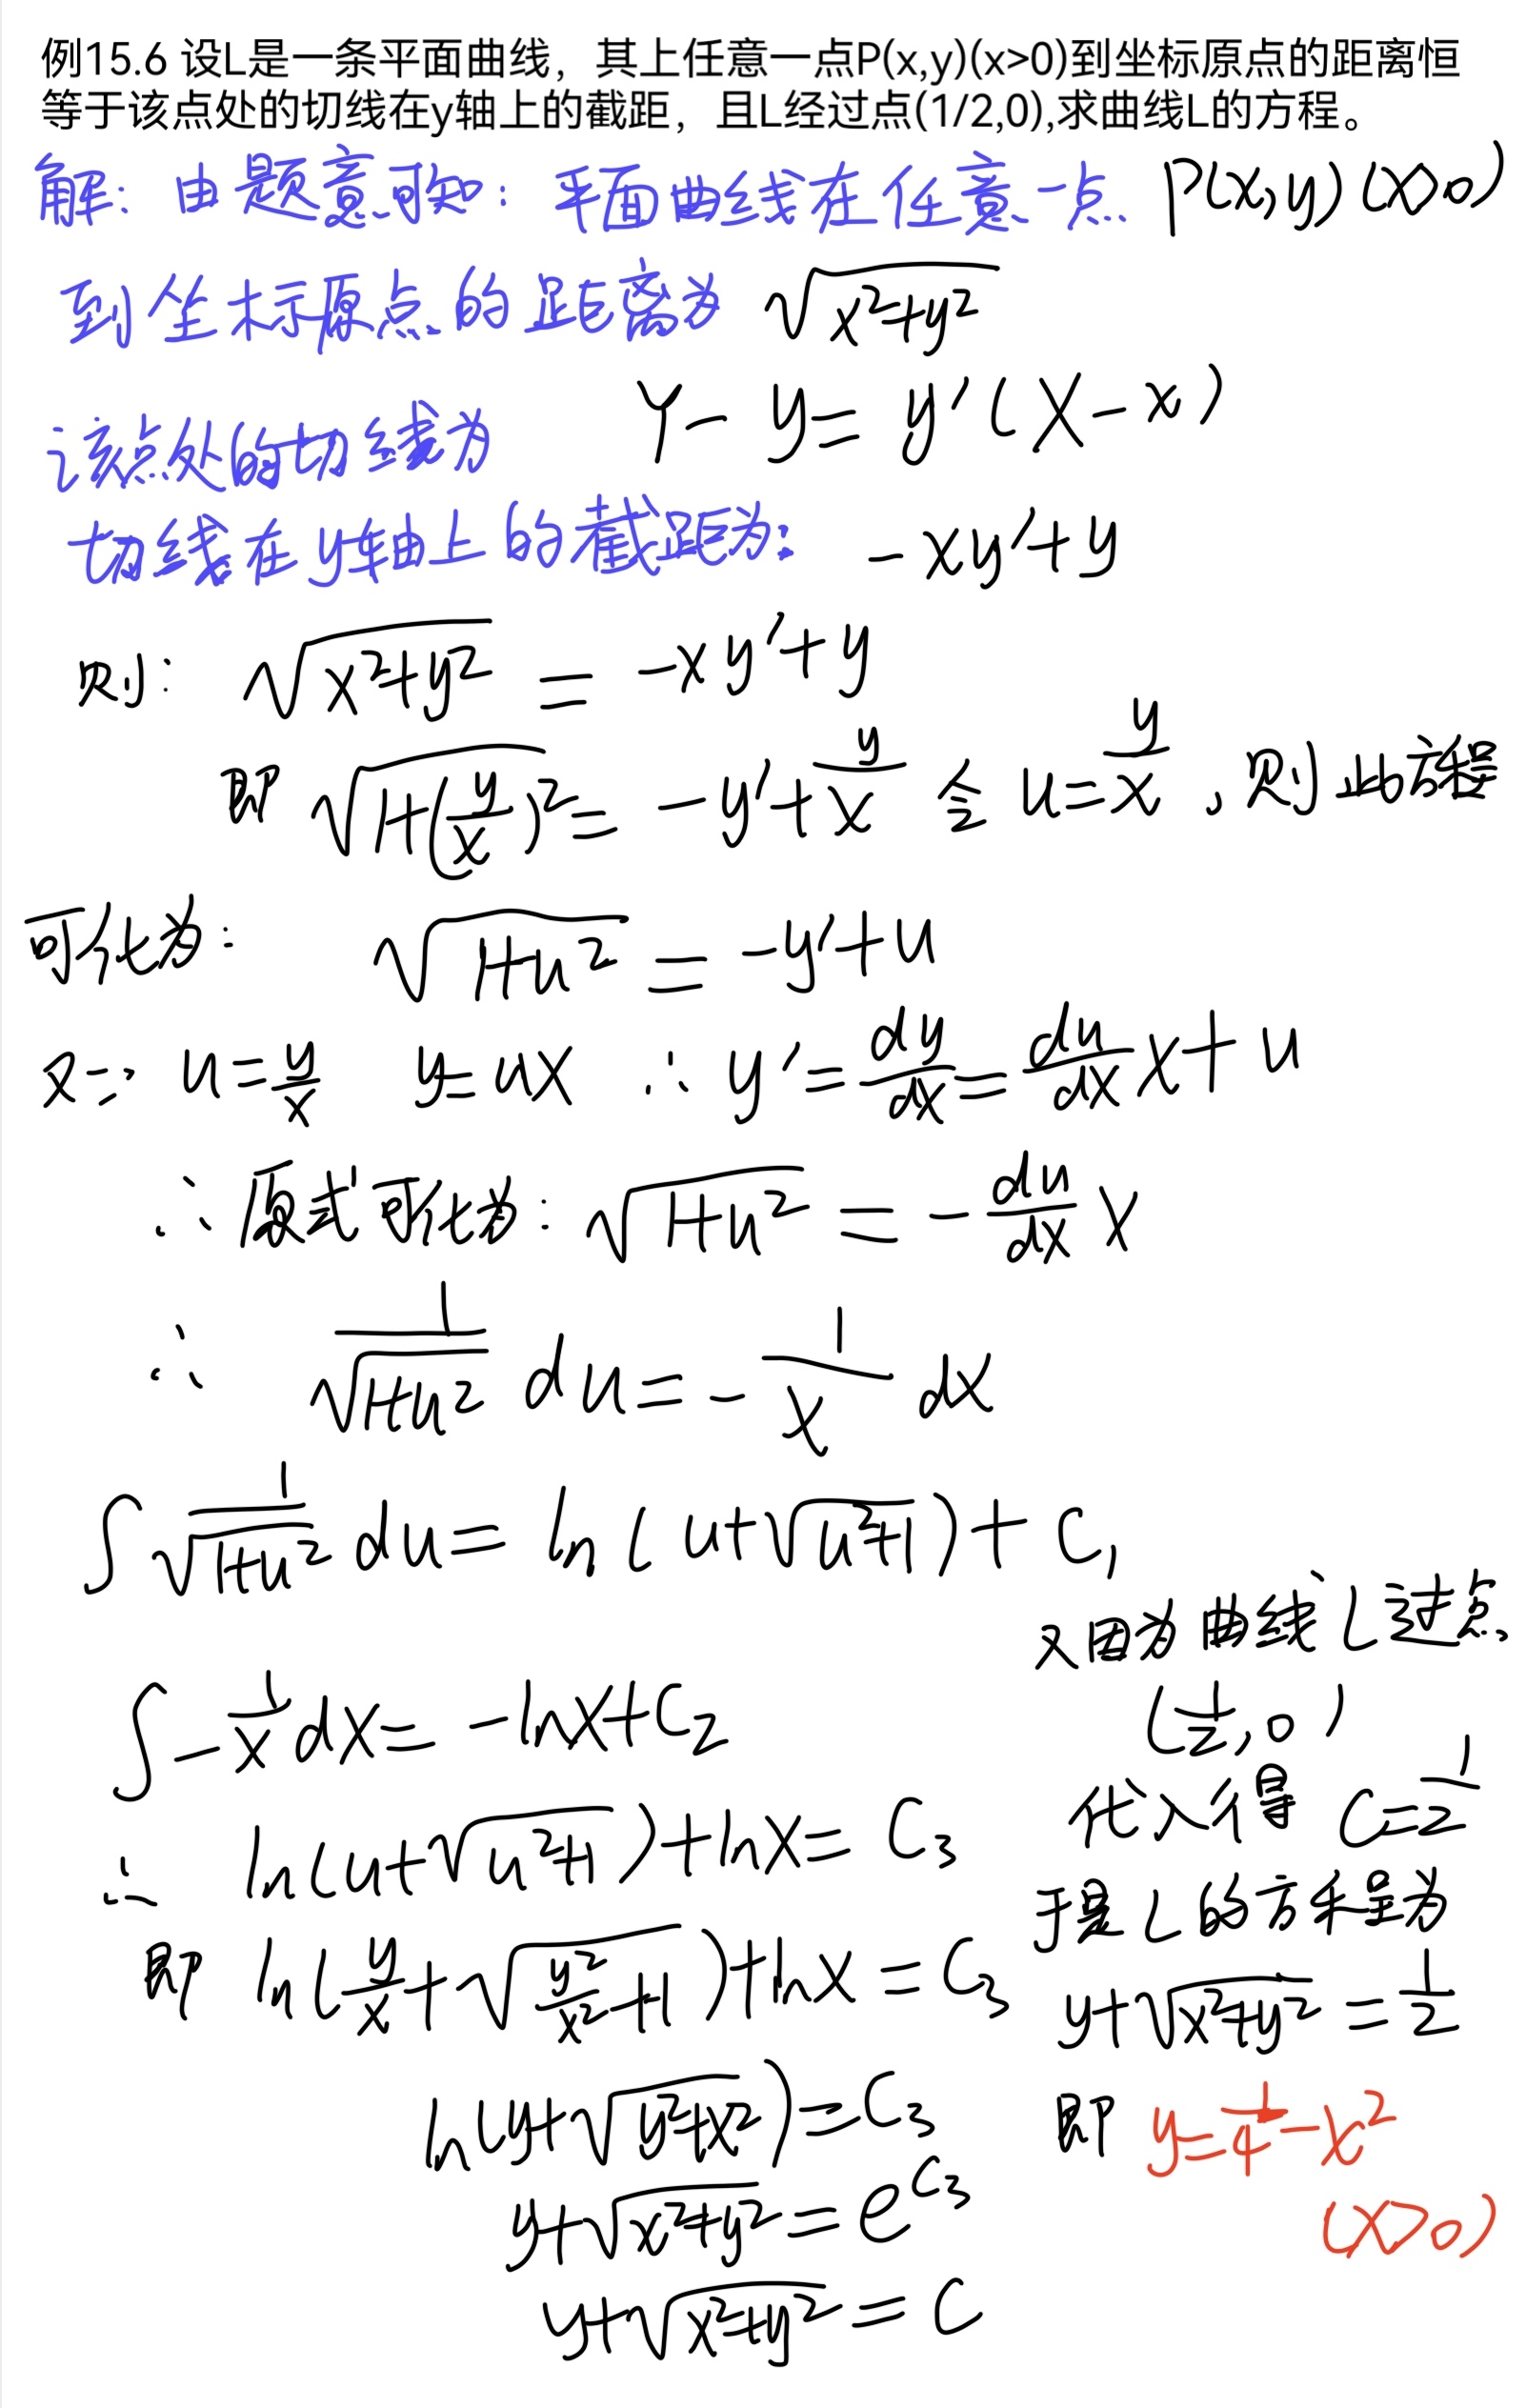 例15.6 设L是一条平面曲线，其上任意一点P(x,y)(x>0)到坐标原点的距离恒
等于该点处的切线在y轴上的截距，且L经过点(1/2,0),求曲线L的方程。
解: 由题意可知: 平面曲线在任意一点 P(x,y)(x>0)
到坐标原点的距离为 √(x²+y²)
该点处的切线为 Y-y=y'(X-x)
切线在y轴上的截距为: -xy'+y
则: √(x²+y²) = -xy'+y
即 √(1+(y/x)²) = -y'+y/x 令 u=y/x ,则此方程
可化为: √(1+u²) = -y'+u
又∵ u=y/x y=ux ∴ y'=dy/dx=du/dx x+u
∴原式可化为: √(1+u²) = -du/dx x
∴ 1/√(1+u²) du = -1/x dx
∫ 1/√(1+u²) du = ln(u+√(u²+1))+C₁
∫ -1/x dx = -lnx+C₂
∴ ln(u+√(u²+1))+lnx=C₃
即 ln(y/x+√(y²/x²+1))+lnx=C₃
ln(y+√(y²+x²))=C₃
y+√(x²+y²)=e^C₃
y+√(x²+y²)=C
又因为曲线L过点
(1/2,0)
代入得 C=1/2
于是L的方程为
y+√(x²+y²)=1/2
即 y=1/4-x²
(x>0)